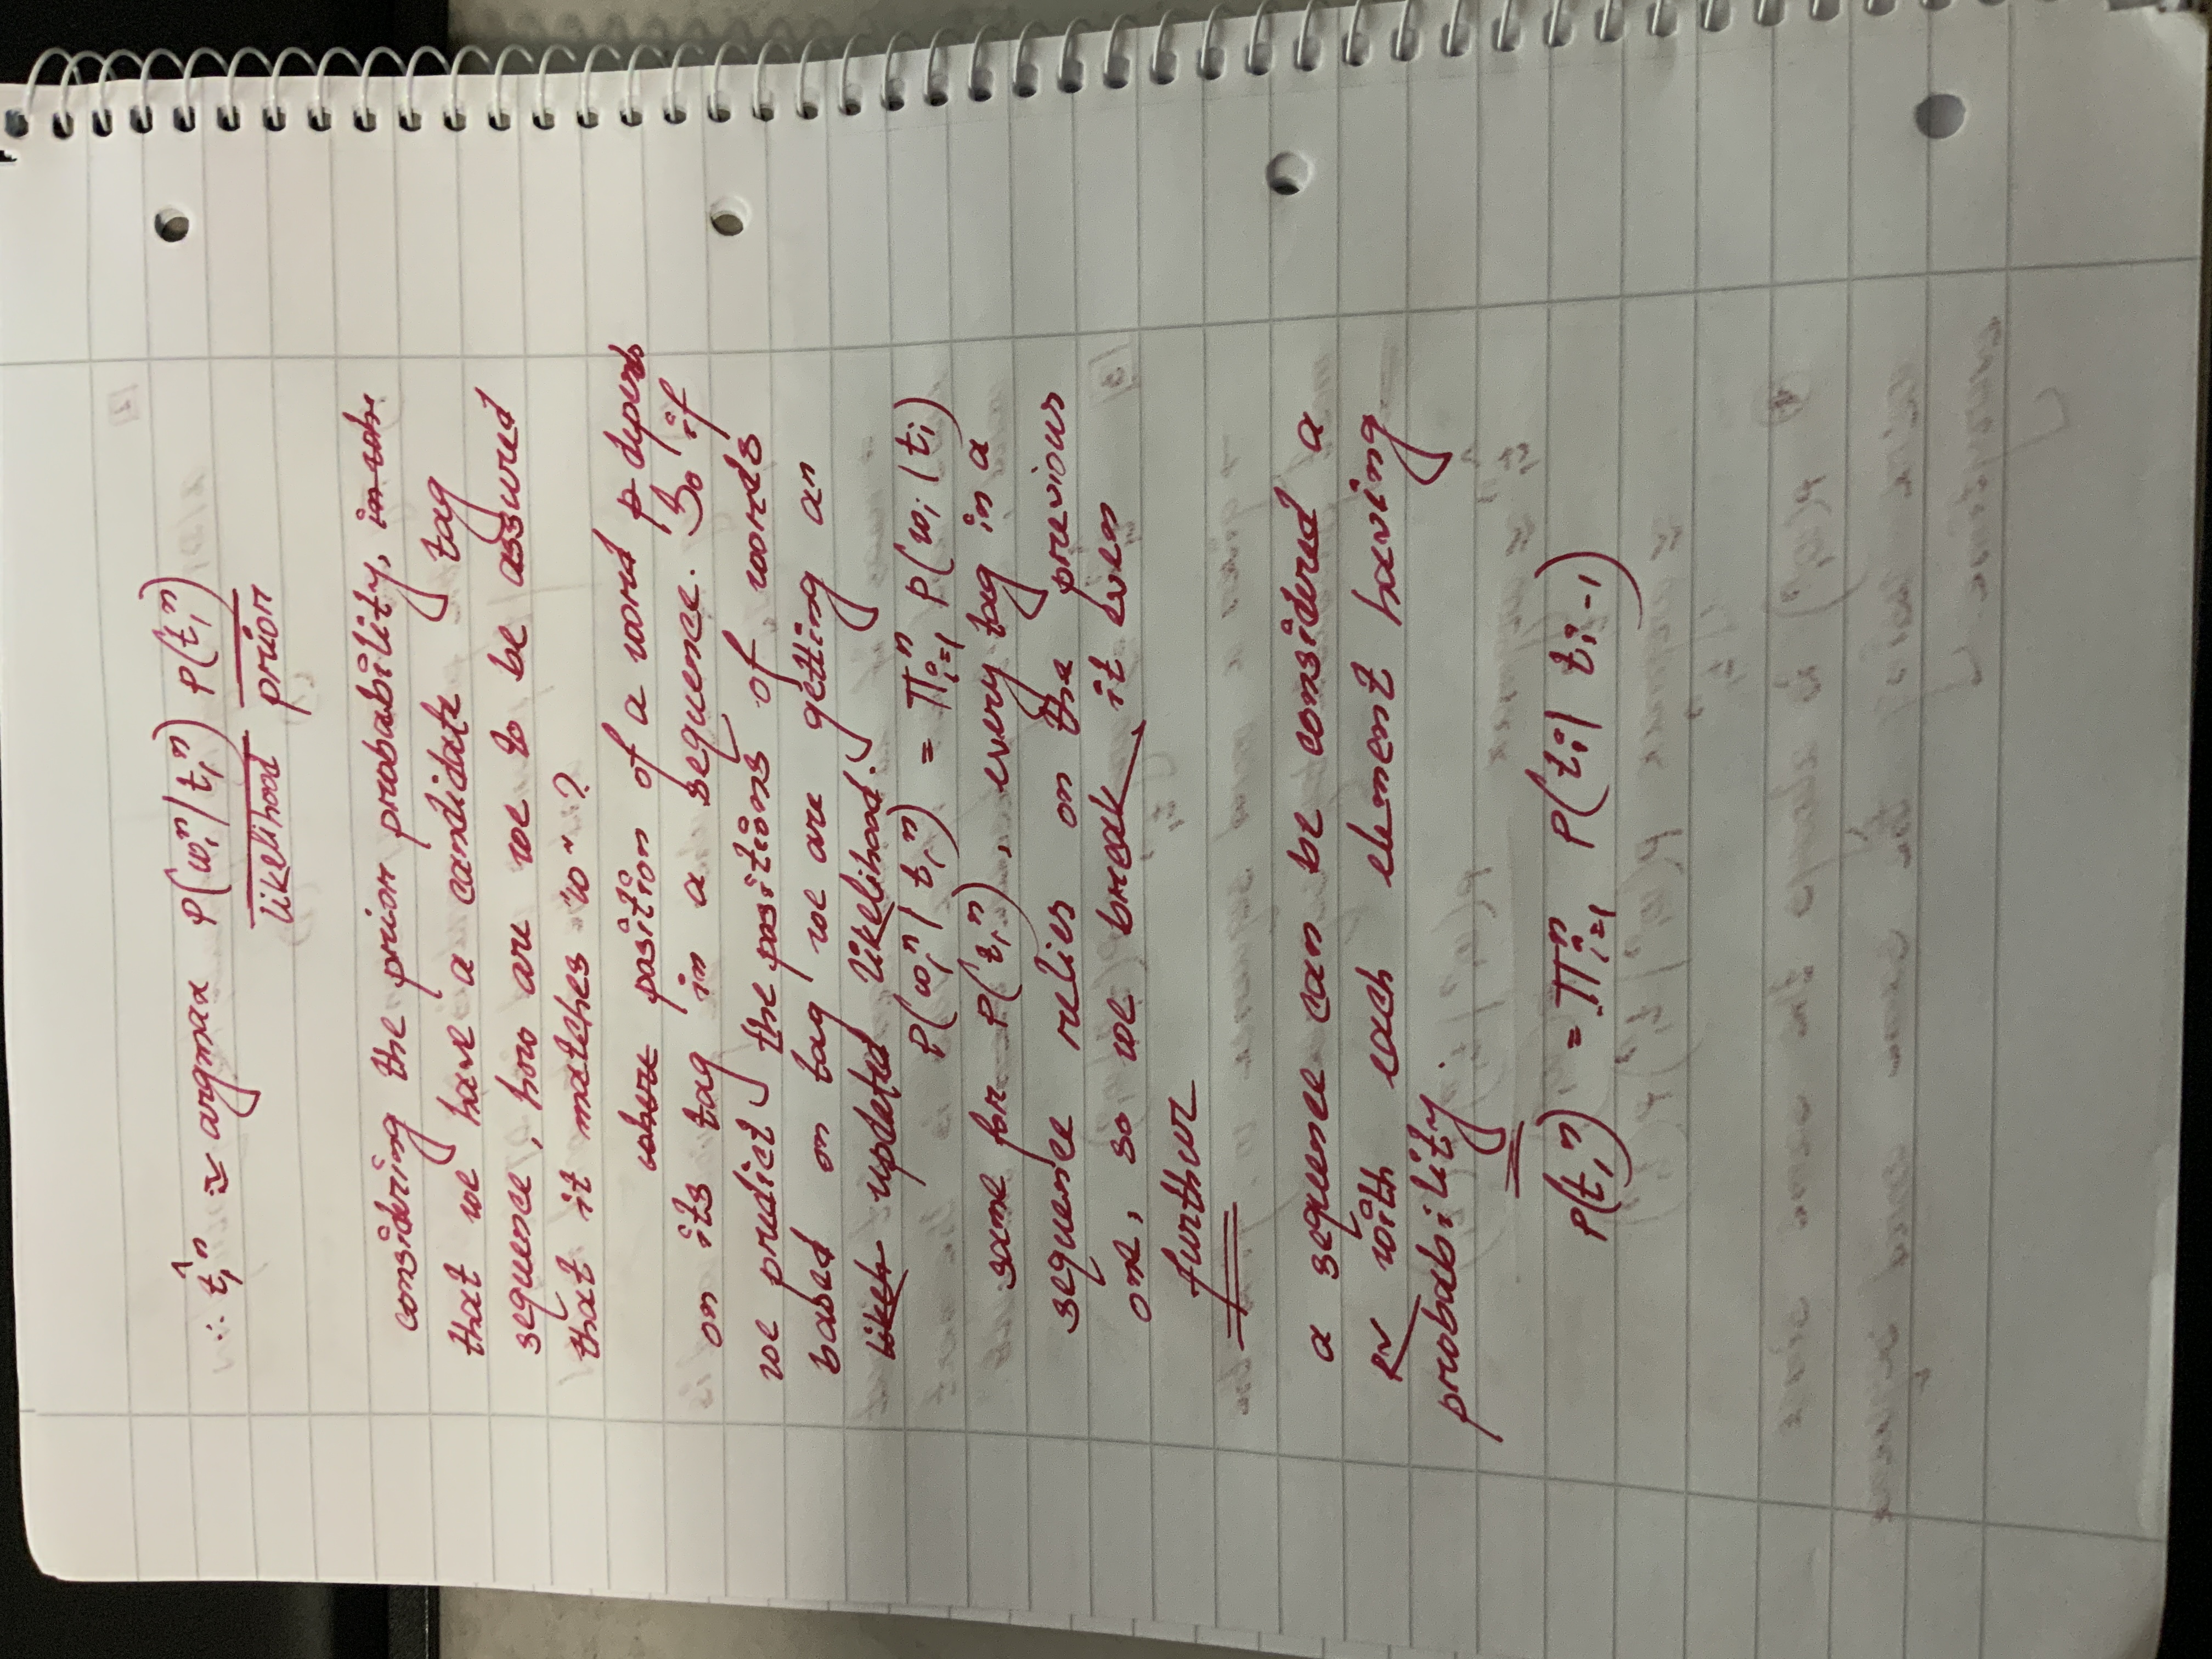 ∴ t̂₁ⁿ ≃ argmax P(w₁ⁿ/t₁ⁿ) P(t₁ⁿ)
likelihood prior
considering the prior probability,
that we have a candidate tag
sequence, how are we to be assured
that it matches "w"?
where position of a word p depends
on its tag in a sequence. So if
we predict the positions of words
based on tag we are getting an
likeh updated likelihood.
P(w₁ⁿ | t₁ⁿ) = Πⁿᵢ₌₁ P(wᵢ | tᵢ)
same for P(t₁ⁿ), every tag in a
sequence relies on the previous
one, so we break it even
furthur
a sequence can be considered a
RV with each element having
probability.
P(t₁ⁿ) = Πⁿᵢ₌₁ P(tᵢ | tᵢ₋₁)